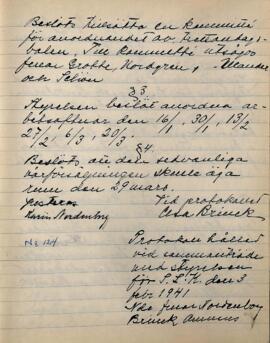 Beslöts tillsätta en kommitté
för anordnandet av trettondags-
balen. Till kommitté utsågos
fruar Grotte, Nordgren,
och Schön
§ 3
Styrelsen beslöt anordna ar-
betsaftnar den 16/1, 30/1, 13/2
27/2, 6/3, 20/3.
§ 4
Beslöts, att den sedvanliga
vårförsäljningen skulle äga
rum den 29 mars.
Justeras Vid protokollet
Karin Nordenborg Brinck
No 124
Protokoll hållet
vid sammanträde
med styrelsen
för S. L. K. den 3
febr 1941
Nbo fruar Nordenborg
Brinck